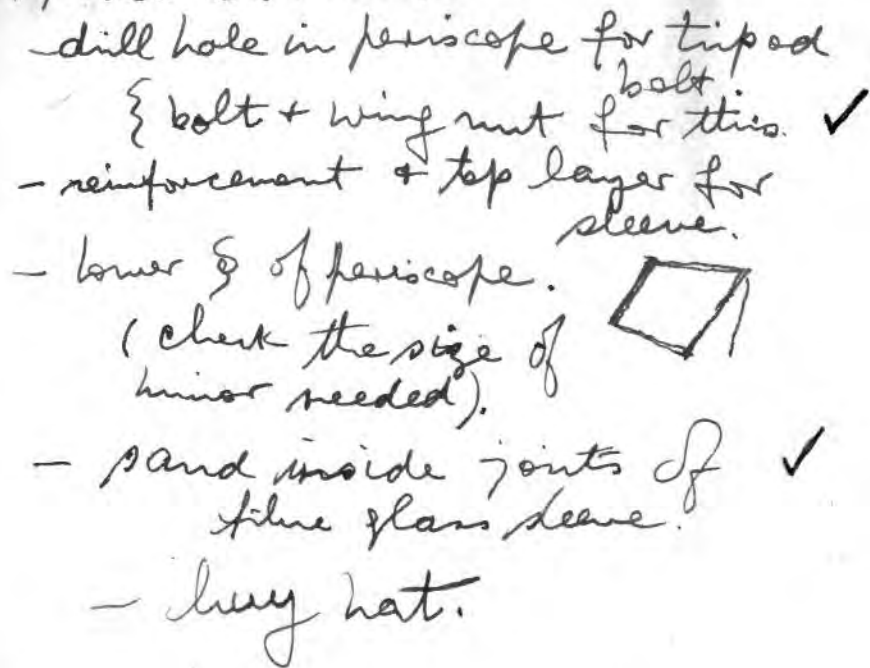 - drill hole in periscope for tripod
bolt
{ bolt + wing nut for this. ✓
- reinforcement + top layer for
sleeve.
- lower § of periscope.
(check the size of
mirror needed).
- sand inside joints of ✓
fibre glass sleeve.
- buy hat.